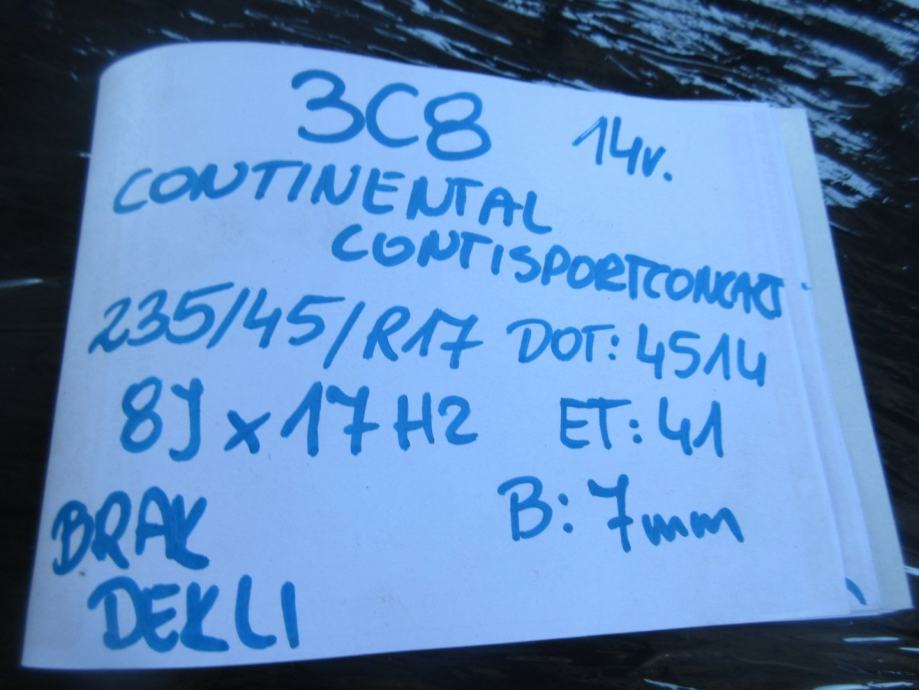 3C8 14r.
CONTINENTAL
CONTISPORTCONCATS
235/45/R17 DOT: 4514
8J x 17 H2 ET: 41
BRAK B: 7mm
DEKLI